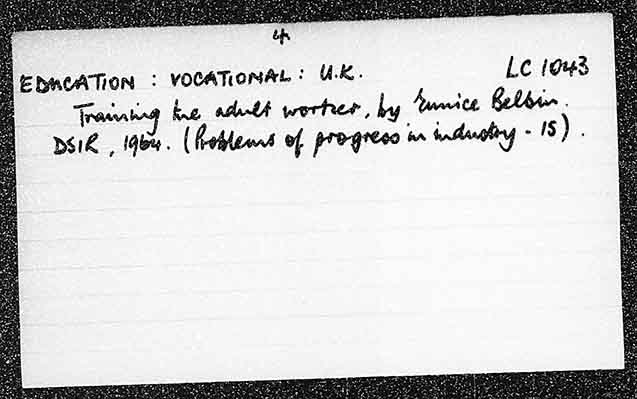 4
EDUCATION : VOCATIONAL : U.K. LC 1043
Training the adult worker, by Eunice Belbin.
DSIR, 1964. (Problems of progress in industry - 15).